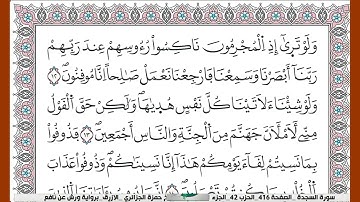 وَلَوْ تَرَىٰ إِذِ الْمُجْرِمُونَ نَاكِسُوا رُءُوسِهِمْ عِندَ رَبِّهِمْ
رَبَّنَا أَبْصَرْنَا وَسَمِعْنَا فَارْجِعْنَا نَعْمَلْ صَالِحاً اِنَّا مُوقِنُونَ ١٢
وَلَوْ شِئْنَا ءَلَاتَيْنَا كُلَّ نَفْسٍ هُدَيٰهَا وَلَٰكِنْ حَقَّ الْقَوْلُ
مِنِّي لَأَمْلَأَنَّ جَهَنَّمَ مِنَ الْجِنَّةِ وَالنَّاسِ أَجْمَعِينَ ١٣ فَذُوقُوا
بِمَا نَسِيتُمْ لِقَاءَ يَوْمِكُمْ هَٰذَا إِنَّا نَسِينَاكُمْ وَذُوقُوا عَذَابَ
سورة السجدة الصفحة 416 الحزب 42 الجزء حمزة الجزائري الازرق برواية ورش عن نافع